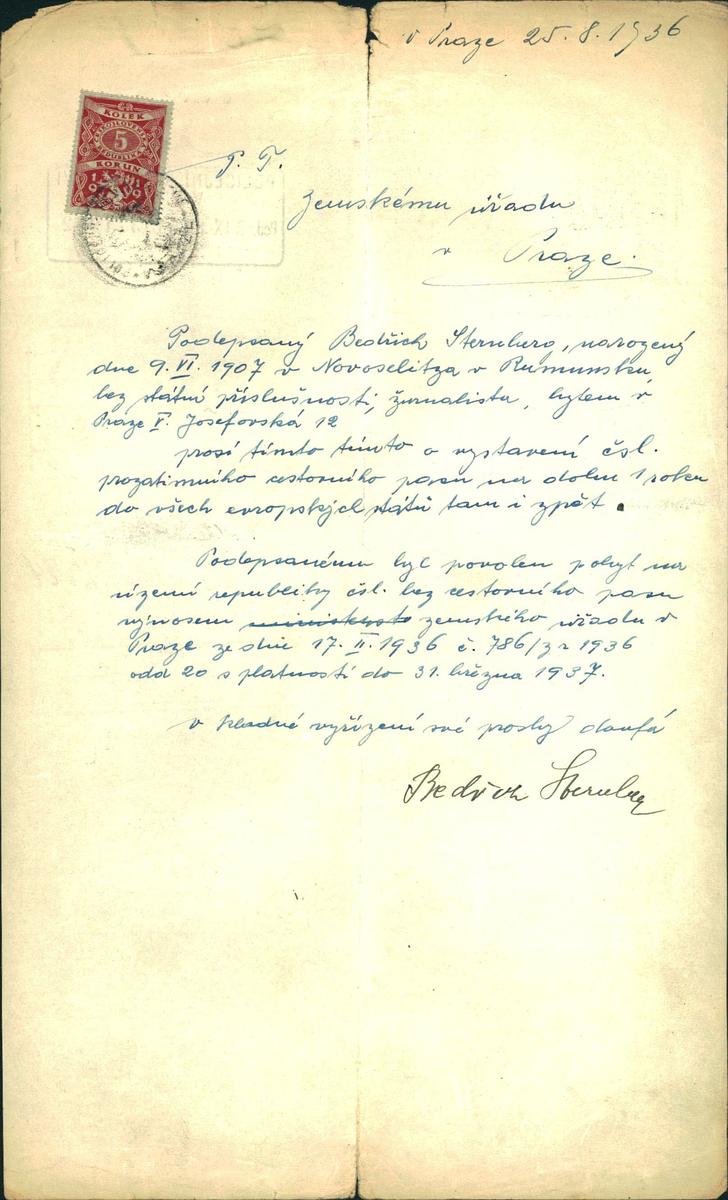 v Praze 25. 8. 1936
KOLEK
5
KORUN
P. T.
Zemskému úřadu
v Praze.
Podepsaný Bedřich Sternberg, narozený
dne 9. VI. 1907 v Novoselitza v Rumunsku
bez státní příslušnosti, žurnalista, bytem v
Praze V. Josefovská 12
prosí tímto tímto o vystavení čsl.
prozatimního cestovního pasu na dobu 1 roku
do všech evropských států tam i zpět.
Podepsanému byl povolen pobyt na
území republiky čsl. bez cestovního pasu
výnosem zemského úřadu v
Praze ze dne 17. II. 1936 č. 786/3 r 1936
odd 20 s platností do 31. března 1937.
v kladné vyřízení své prosby doufá
Bedřich Sternberg